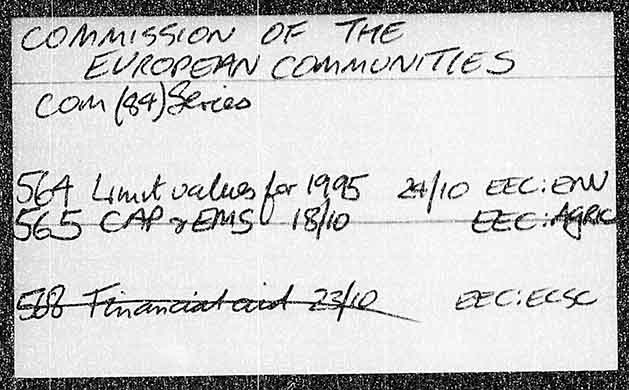 COMMISSION OF THE
EUROPEAN COMMUNITIES
COM (84) Series
564 Limit values for 1995 24/10 EEC: ENV
565 CAP & EMS 18/10 EEC: AGRIC
568 Financial aid 23/10 EEC: ECSC